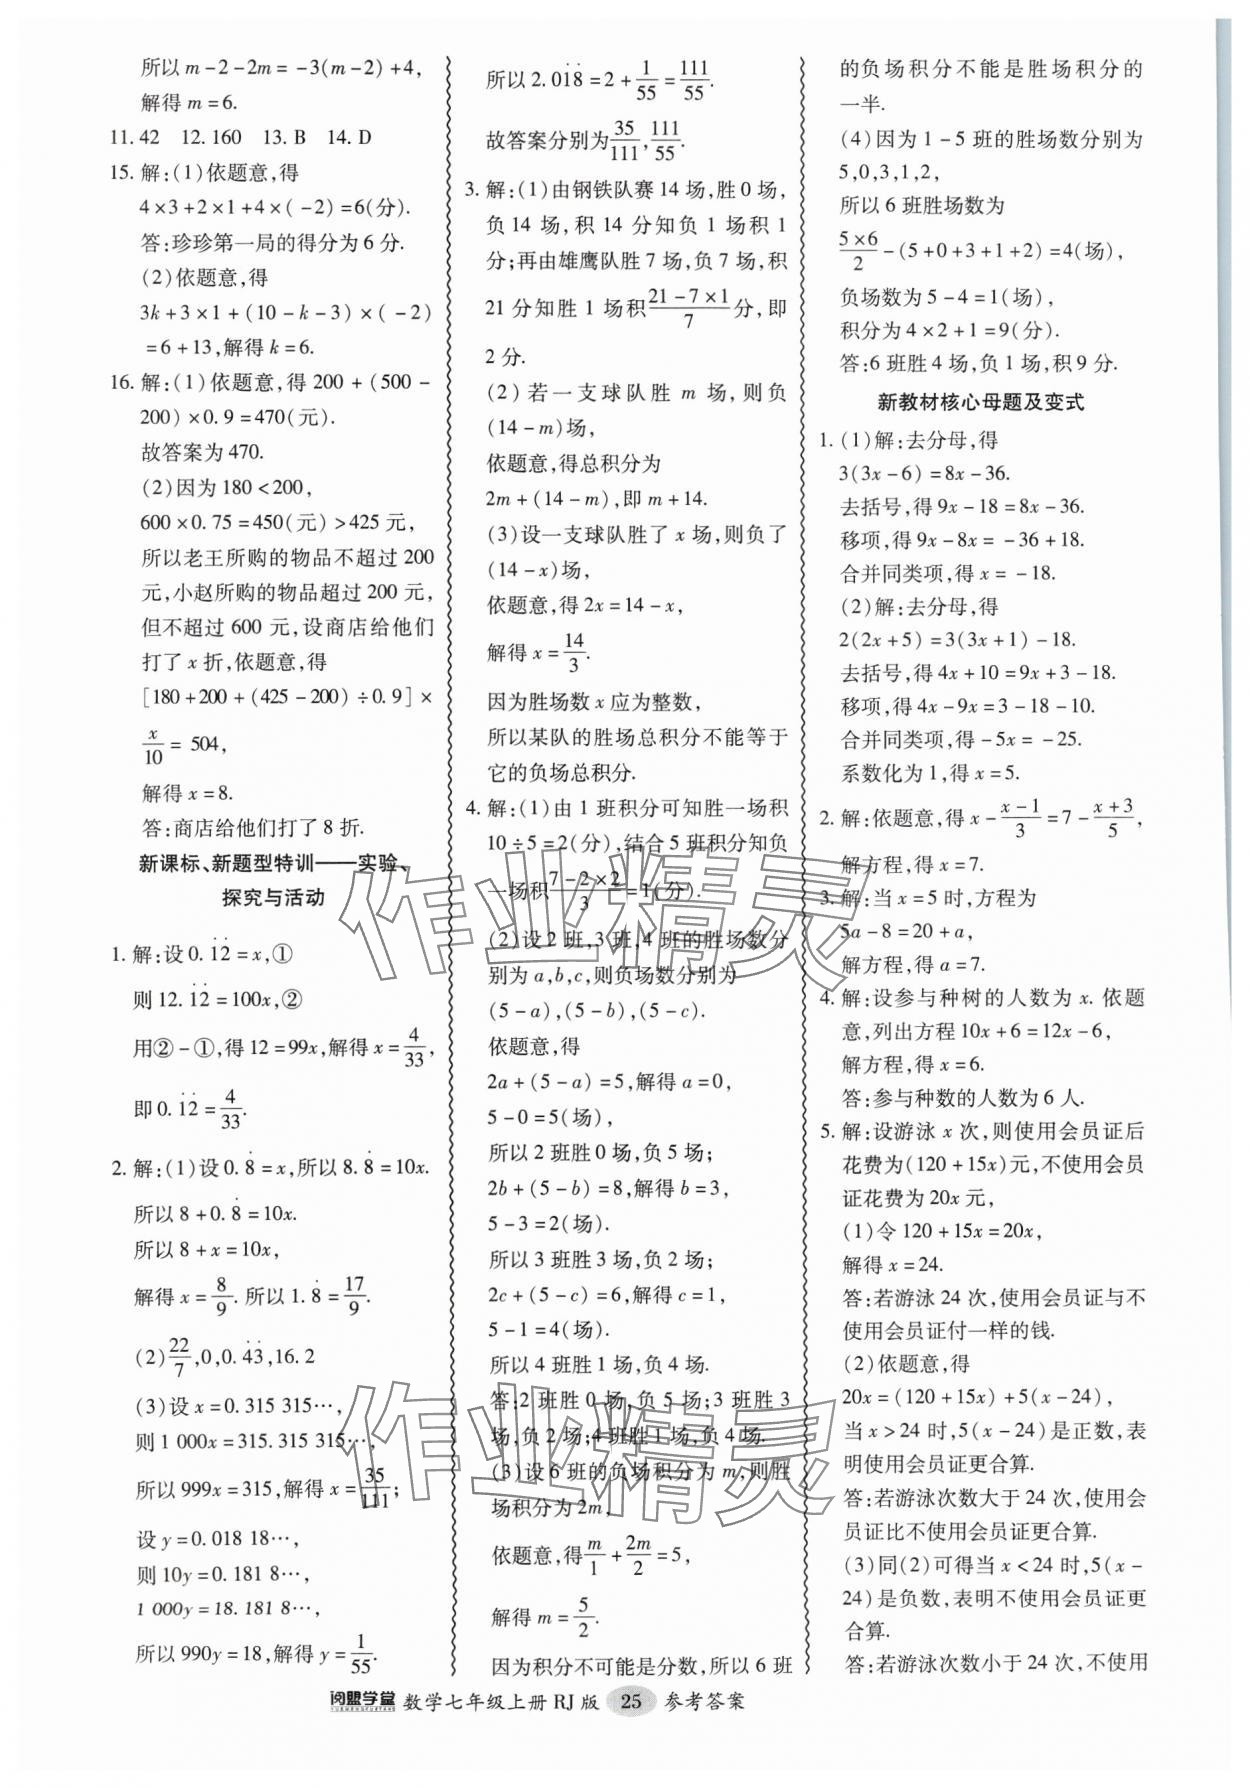 所以 m-2-2m=-3(m-2)+4,
解得 m=6.
11.42 12.160 13.B 14.D
15.解:(1)依题意,得
4×3+2×1+4×(-2)=6(分).
答:珍珍第一局的得分为6分.
(2)依题意,得
3k+3×1+(10-k-3)×(-2)
=6+13,解得 k=6.
16.解:(1)依题意,得 200+(500-
200)×0.9=470(元).
故答案为470.
(2)因为180<200,
600×0.75=450(元)>425元,
所以老王所购的物品不超过200
元,小赵所购的物品超过200元,
但不超过600元,设商店给他们
打了x折,依题意,得
[180+200+(425-200)÷0.9]×
x/10=504,
解得 x=8.
答:商店给他们打了8折.
新课标、新题型特训——实验、
探究与活动
1.解:设0.1̇2̇=x,①
则12.1̇2̇=100x,②
用②-①,得12=99x,解得x=4/33,
即0.1̇2̇=4/33.
2.解:(1)设0.8̇=x,所以8.8̇=10x.
所以8+0.8̇=10x.
所以8+x=10x,
解得x=8/9.所以1.8̇=17/9.
(2)22/7,0,0.4̇3̇,16.2
(3)设x=0.315 315…,
则1 000x=315.315 315…,
所以999x=315,解得x=35/111;
设y=0.018 18…,
则10y=0.181 8…,
1 000y=18.181 8…,
所以990y=18,解得y=1/55.
所以2.01̇8̇=2+1/55=111/55.
故答案分别为35/111,111/55.
3.解:(1)由钢铁队赛14场,胜0场,
负14场,积14分知负1场积1
分;再由雄鹰队胜7场,负7场,积
21分知胜1场积(21-7×1)/7分,即
2分.
(2)若一支球队胜m场,则负
(14-m)场,
依题意,得总积分为
2m+(14-m),即m+14.
(3)设一支球队胜了x场,则负了
(14-x)场,
依题意,得2x=14-x,
解得x=14/3.
因为胜场数x应为整数,
所以某队的胜场总积分不能等于
它的负场总积分.
4.解:(1)由1班积分可知胜一场积
10÷5=2(分),结合5班积分知负
一场积(7-2×2)/3=1(分).
(2)设2班,3班,4班的胜场数分
别为a,b,c,则负场数分别为
(5-a),(5-b),(5-c).
依题意,得
2a+(5-a)=5,解得a=0,
5-0=5(场),
所以2班胜0场,负5场;
2b+(5-b)=8,解得b=3,
5-3=2(场).
所以3班胜3场,负2场;
2c+(5-c)=6,解得c=1,
5-1=4(场).
所以4班胜1场,负4场.
答:2班胜0场,负5场;3班胜3
场,负2场;4班胜1场,负4场.
(3)设6班的负场积分为m,则胜
场积分为2m,
依题意,得m/1+2m/2=5,
解得m=5/2.
因为积分不可能是分数,所以6班
的负场积分不能是胜场积分的
一半.
(4)因为1-5班的胜场数分别为
5,0,3,1,2,
所以6班胜场数为
(5×6)/2-(5+0+3+1+2)=4(场),
负场数为5-4=1(场),
积分为4×2+1=9(分).
答:6班胜4场,负1场,积9分.
新教材核心母题及变式
1.(1)解:去分母,得
3(3x-6)=8x-36.
去括号,得9x-18=8x-36.
移项,得9x-8x=-36+18.
合并同类项,得x=-18.
(2)解:去分母,得
2(2x+5)=3(3x+1)-18.
去括号,得4x+10=9x+3-18.
移项,得4x-9x=3-18-10.
合并同类项,得-5x=-25.
系数化为1,得x=5.
2.解:依题意,得x-(x-1)/3=7-(x+3)/5,
解方程,得x=7.
3.解:当x=5时,方程为
5a-8=20+a,
解方程,得a=7.
4.解:设参与种树的人数为x.依题
意,列出方程10x+6=12x-6,
解方程,得x=6.
答:参与种数的人数为6人.
5.解:设游泳x次,则使用会员证后
花费为(120+15x)元,不使用会员
证花费为20x元,
(1)令120+15x=20x,
解得x=24.
答:若游泳24次,使用会员证与不
使用会员证付一样的钱.
(2)依题意,得
20x=(120+15x)+5(x-24),
当x>24时,5(x-24)是正数,表
明使用会员证更合算.
答:若游泳次数大于24次,使用会
员证比不使用会员证更合算.
(3)同(2)可得当x<24时,5(x-
24)是负数,表明不使用会员证更
合算.
答:若游泳次数小于24次,不使用
作业精灵
作业精灵
阅盟学堂 数学七年级上册 RJ版 25 参考答案